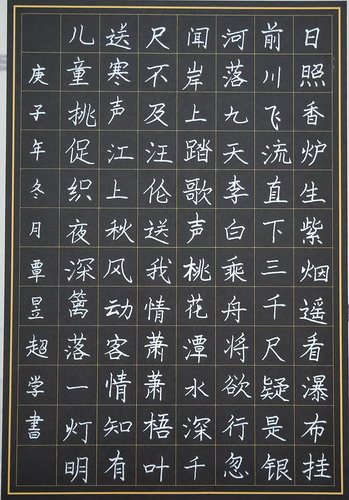 日照香炉生紫烟遥看瀑布挂
前川飞流直下三千尺疑是银
河落九天李白乘舟将欲行忽
闻岸上踏歌声桃花潭水深千
尺不及汪伦送我情萧萧梧叶
送寒声江上秋风动客情知有
儿童挑促织夜深篱落一灯明
庚子年冬月覃昱超学書